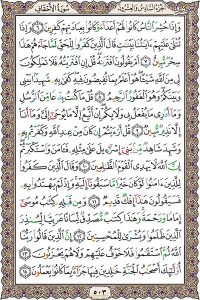 الجُزْءُ السَّادِسُ وَالعِشْرُونَ سُورَةُ الأَحْقَافِ
وَإِذَا حُشِرَ ٱلنَّاسُ كَانُوا۟ لَهُمْ أَعْدَآءً وَكَانُوا۟ بِعِبَادَتِهِمْ كَـٰفِرِينَ ٦ وَإِذَا
تُتْلَىٰ عَلَيْهِمْ ءَايَـٰتُنَا بَيِّنَـٰتٍ قَالَ ٱلَّذِينَ كَفَرُوا۟ لِلْحَقِّ لَمَّا جَآءَهُمْ هَـٰذَا
سِحْرٌ مُّبِينٌ ٧ أَمْ يَقُولُونَ ٱفْتَرَىٰهُ قُلْ إِنِ ٱفْتَرَيْتُهُۥ فَلَا تَمْلِكُونَ لِى
مِنَ ٱللَّهِ شَيْـًٔا هُوَ أَعْلَمُ بِمَا تُفِيضُونَ فِيهِ كَفَىٰ بِهِۦ شَهِيدًۢا بَيْنِى
وَبَيْنَكُمْ وَهُوَ ٱلْغَفُورُ ٱلرَّحِيمُ ٨ قُلْ مَا كُنتُ بِدْعًا مِّنَ ٱلرُّسُلِ
وَمَآ أَدْرِى مَا يُفْعَلُ بِى وَلَا بِكُمْ إِنْ أَتَّبِعُ إِلَّا مَا يُوحَىٰٓ إِلَىَّ وَمَآ أَنَا۠
إِلَّا نَذِيرٌ مُّبِينٌ ٩ قُلْ أَرَءَيْتُمْ إِن كَانَ مِنْ عِندِ ٱللَّهِ وَكَفَرْتُم بِهِۦ
وَشَهِدَ شَاهِدٌ مِّنۢ بَنِىٓ إِسْرَٰٓءِيلَ عَلَىٰ مِثْلِهِۦ فَـَٔامَنَ وَٱسْتَكْبَرْتُمْ
إِنَّ ٱللَّهَ لَا يَهْدِى ٱلْقَوْمَ ٱلظَّـٰلِمِينَ ١٠ وَقَالَ ٱلَّذِينَ كَفَرُوا۟
لِلَّذِينَ ءَامَنُوا۟ لَوْ كَانَ خَيْرًا مَّا سَبَقُونَآ إِلَيْهِ وَإِذْ لَمْ يَهْتَدُوا۟ بِهِۦ
فَسَيَقُولُونَ هَـٰذَآ إِفْكٌ قَدِيمٌ ١١ وَمِن قَبْلِهِۦ كِتَـٰبُ مُوسَىٰٓ
إِمَامًا وَرَحْمَةً وَهَـٰذَا كِتَـٰبٌ مُّصَدِّقٌ لِّسَانًا عَرَبِيًّا لِّيُنذِرَ
ٱلَّذِينَ ظَلَمُوا۟ وَبُشْرَىٰ لِلْمُحْسِنِينَ ١٢ إِنَّ ٱلَّذِينَ قَالُوا۟ رَبُّنَا
ٱللَّهُ ثُمَّ ٱسْتَقَـٰمُوا۟ فَلَا خَوْفٌ عَلَيْهِمْ وَلَا هُمْ يَحْزَنُونَ ١٣
أُو۟لَـٰٓئِكَ أَصْحَـٰبُ ٱلْجَنَّةِ خَـٰلِدِينَ فِيهَا جَزَآءًۢ بِمَا كَانُوا۟ يَعْمَلُونَ ١٤
٥٠٣